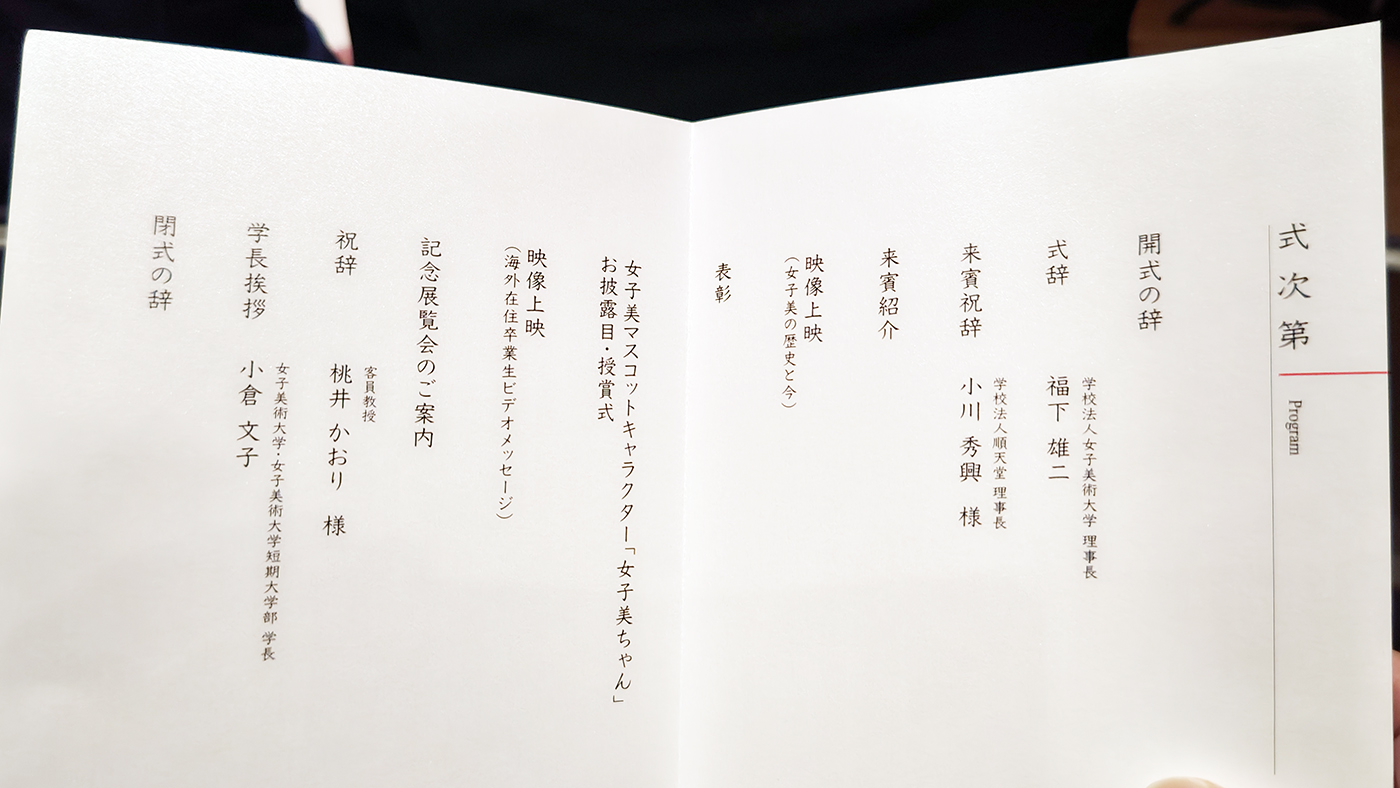 式次第
Program
開式の辞
式辞
学校法人女子美術大学 理事長
福下 雄二
来賓祝辞
学校法人順天堂 理事長
小川 秀興 様
来賓紹介
映像上映
（女子美の歴史と今）
表彰
女子美マスコットキャラクター「女子美ちゃん」
お披露目・授賞式
映像上映
（海外在住卒業生ビデオメッセージ）
記念展覧会のご案内
祝辞
客員教授
桃井 かおり 様
学長挨拶
女子美術大学・女子美術大学短期大学部 学長
小倉 文子
閉式の辞